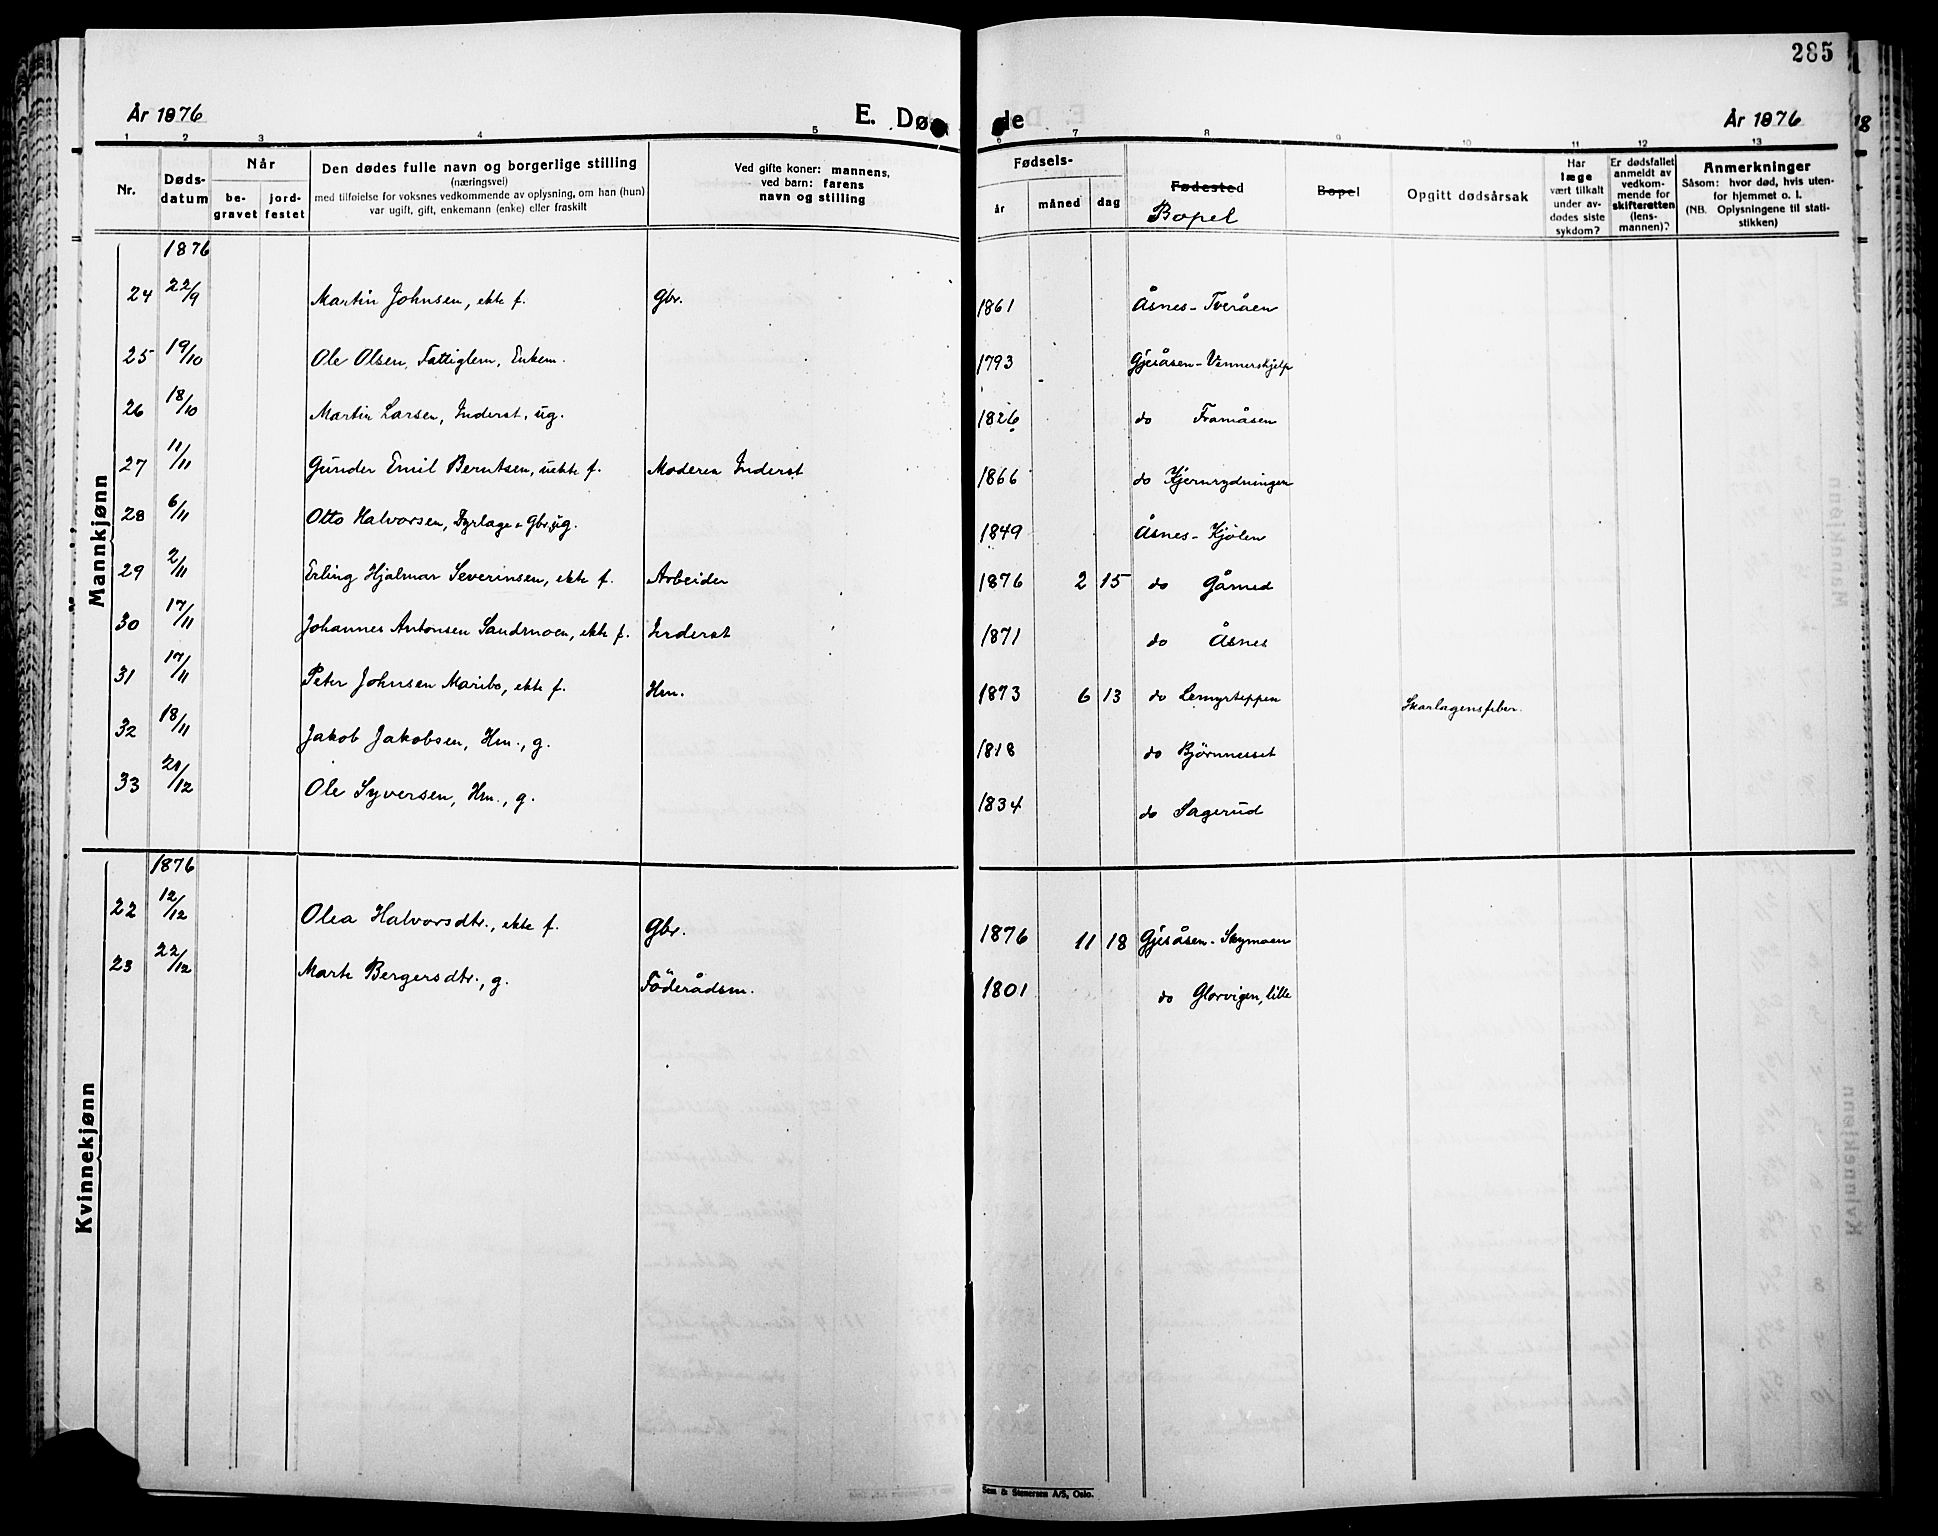 285
År 1876 E. Dø de År 1876
1 2 3 4 5 6 7 8 9 10 11 12 13
Nr.
Døds-
datum
Når
be-
gravet
jord-
festet
Den dødes fulle navn og borgerlige stilling
(næringsvei)
med tilføielse for voksnes vedkommende av oplysning, om han (hun)
var ugift, gift, enkemann (enke) eller fraskilt
Ved gifte koner: mannens,
ved barn: farens
navn og stilling
Fødsels-
år måned dag
Fødested
Bopel
Bopel
Opgitt dødsårsak
Har
læge
vært tilkalt
under av-
dødes siste
sykdom?
Er dødsfallet
anmeldt av
vedkom-
mende for
skifteretten
(lens-
mannen)?
Anmerkninger
Såsom: hvor død, hvis uten-
for hjemmet o. l.
(NB. Oplysningene til stati-
stikken)
Mannkjønn
1876
24 22/9 Martin Johnsen, ekte f. Gbr. 1861 Åsnes - Tveråen
25 19/10 Ole Olsen, Fattiglem, Enkem. 1793 Gjesåsen - Vennershjelp
26 18/10 Martin Larsen, Inderst, ug. 1826 do Framåsen
27 11/11 Gunder Emil Berntsen, uekte f. Moderen Inderst 1866 do Kjernrydningen
28 6/11 Otto Halvorsen, Dyrlæge & Gbr, ug. 1849 Åsnes - Kjølen
29 2/11 Erling Hjalmar Severinsen, ekte f. Arbeider 1876 2 15 do Gårned
30 17/11 Johannes Antonsen Sandmoen, ekte f. Inderst 1871 do Åsnes
31 17/11 Peter Johnsen Maribo, ekte f. Hm. 1873 6 13 do Lemyrteppen Skarlagensfeber.
32 18/11 Jakob Jakobsen, Hm., g. 1818 do Bjørnnesset
33 21/12 Ole Syversen, Hm., g. 1834 do Sagerud
Kvinnekjønn
1876
22 12/12 Olea Halvorsdtr., ekte f. Gbr. 1876 11 18 Gjesåsen - Skymoen
23 22/12 Marte Bergersdtr., g. Föderådsm. 1801 do Glorvigen, lille
Sem & Stenersen A/S, Oslo.